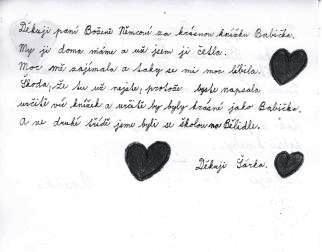 Děkuji paní Boženě Němcové za krásnou knížku Babička.
My ji doma máme a už jsem ji četla.
Moc mě zajímala a taky se mi moc líbila.
Škoda, že tu už nejste, protože byste napsala
určitě víc knížek a určitě by byly krásné jako Babička.
A ve druhé třídě jsme byli se školou na Bělidle.
Děkuji Šárka.